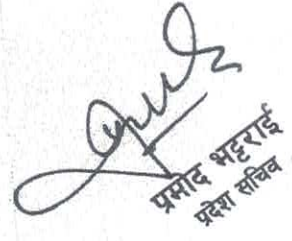 प्रमोद भट्टराई
प्रदेश सचिव